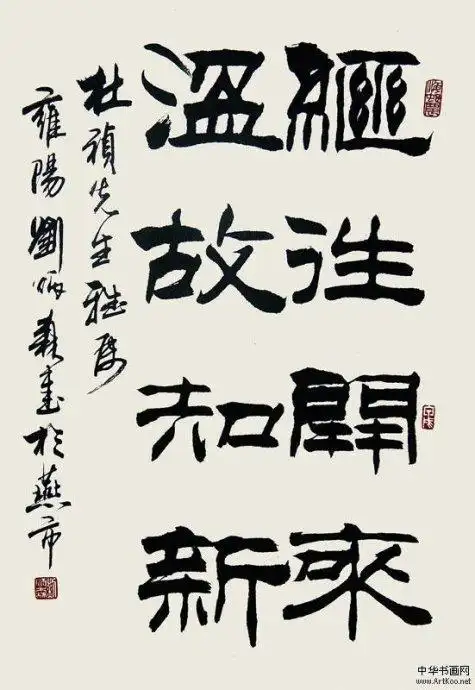 繼往開來
溫故知新
杜禎先生雅屬
雍陽劉炳森書於燕市
中华书画网
www.ArtKoo.net